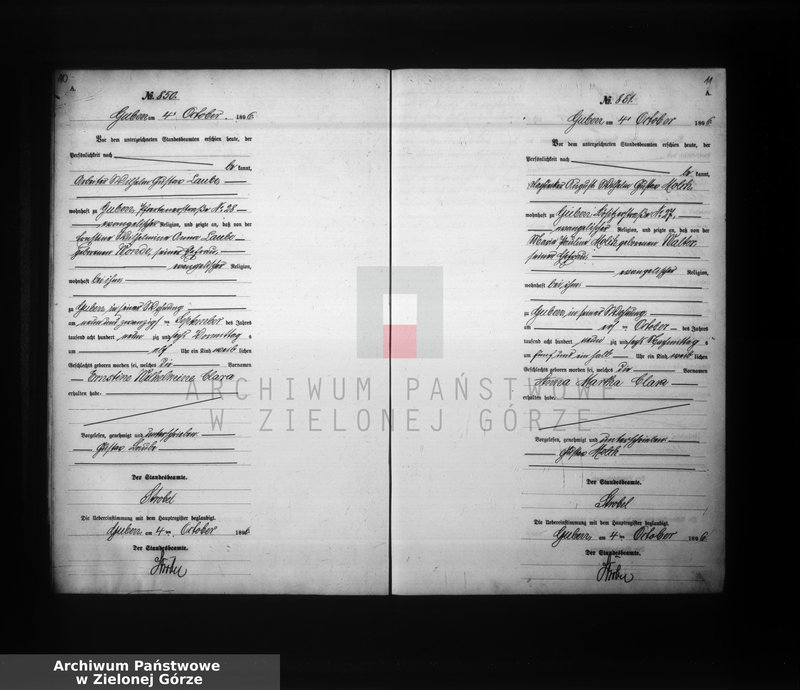 10
A.
№ 850.
Guben am 4ten October 1896.
Vor dem unterzeichneten Standesbeamten erschien heute, der
Persönlichkeit nach
be kannt,
Arbeiter Wilhelm Gustav Laube
wohnhaft zu Guben, № 28
evangelischer Religion, und zeigte an, daß von der
Wilhelmine Anna Laube
geborenen seiner Ehefrau,
evangelischer Religion,
wohnhaft bei ihm
zu Guben, in seiner Wohnung
am neun und zwanzigsten September des Jahres
tausend acht hundert neun zig und sechs Vormittags
um Uhr ein Kind weib lichen
Geschlechts geboren worden sei, welches die Vornamen
Ernstine Wilhelmine Clara
erhalten habe.
Vorgelesen, genehmigt und unterschrieben
Gustav Laube
Der Standesbeamte.
Strobel
Die Uebereinstimmung mit dem Hauptregister beglaubigt.
Guben, am 4ten October 1896.
Der Standesbeamte.
Strobel
11
A.
№ 851.
Guben am 4ten October 1896.
Vor dem unterzeichneten Standesbeamten erschien heute, der
Persönlichkeit nach
be kannt,
August Wilhelm Gustav Molik
wohnhaft zu Guben № 27,
evangelischer Religion, und zeigte an, daß von der
Maria Pauline Molik geborenen Walter,
seiner Ehefrau,
evangelischer Religion,
wohnhaft bei ihm
zu Guben, in seiner Wohnung
am October des Jahres
tausend acht hundert neun zig und sechs Nachmittags
um fünf und ein halb Uhr ein Kind weib lichen
Geschlechts geboren worden sei, welches die Vornamen
Anna Martha Clara
erhalten habe.
Vorgelesen, genehmigt und unterschrieben
Gustav Molik
Der Standesbeamte.
Strobel
Die Uebereinstimmung mit dem Hauptregister beglaubigt.
Guben, am 4ten October 1896.
Der Standesbeamte.
Strobel
ARCHIWUM PAŃSTWOWE
W ZIELONEJ GÓRZE
Archiwum Państwowe
w Zielonej Górze